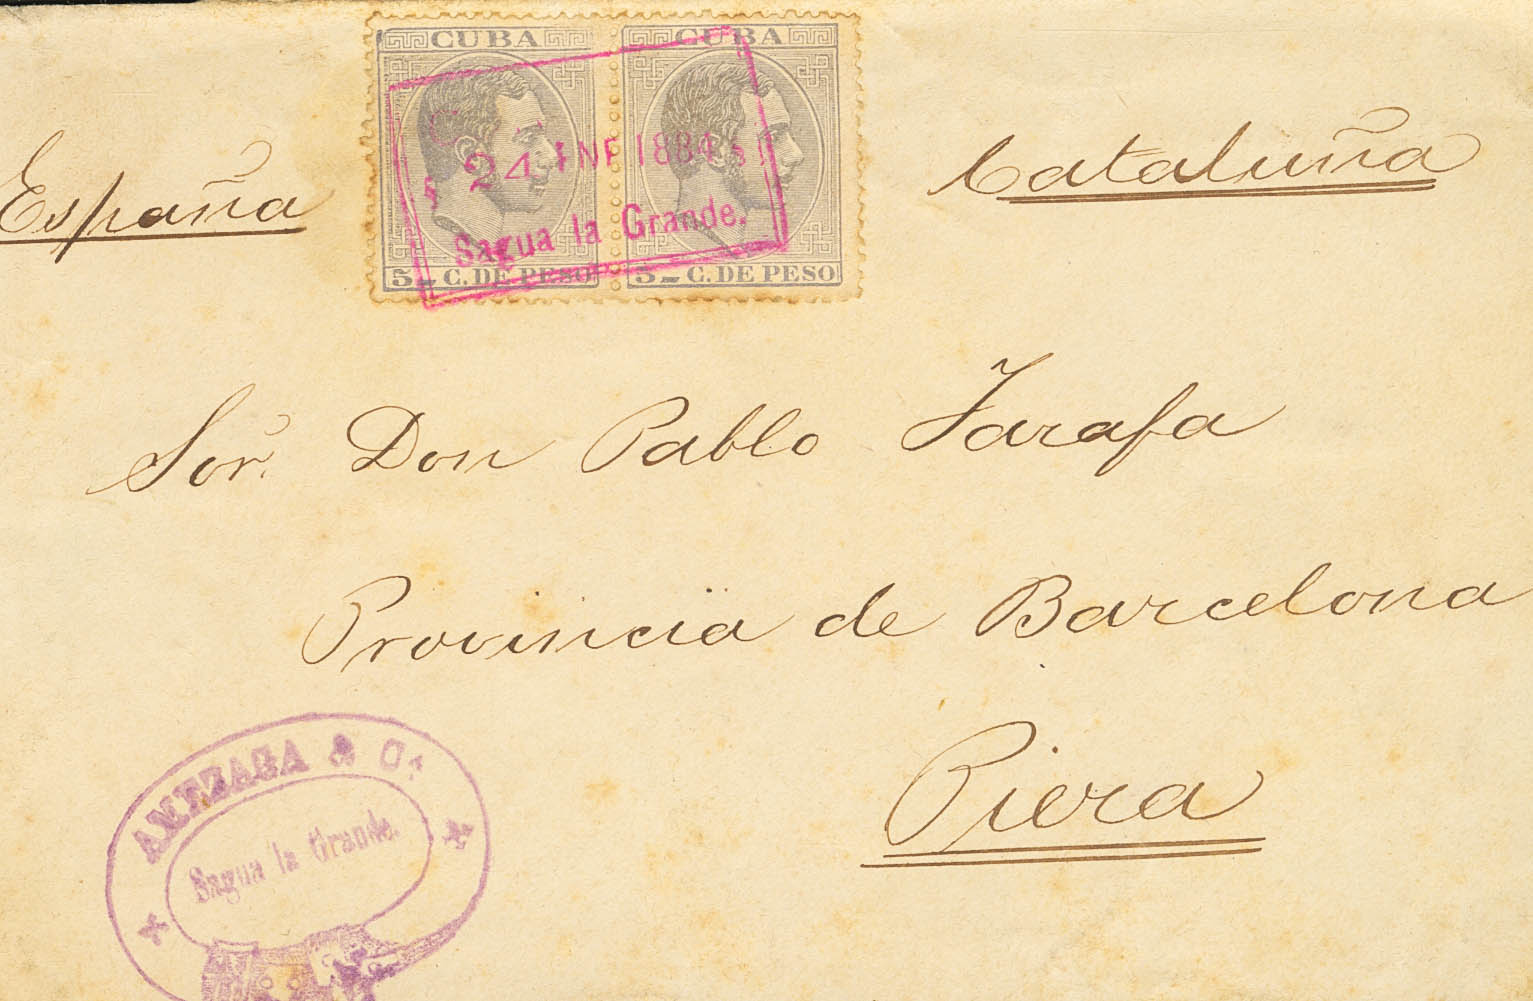 CUBA CUBA
24 ENE 1884
Sagua la Grande.
5 C. DE PESO 5 C. DE PESO
España
Cataluña
Sor. Don Pablo Tarafa
Provincia de Barcelona
Piera
AMEZAGA & Ca.
Sagua la Grande.